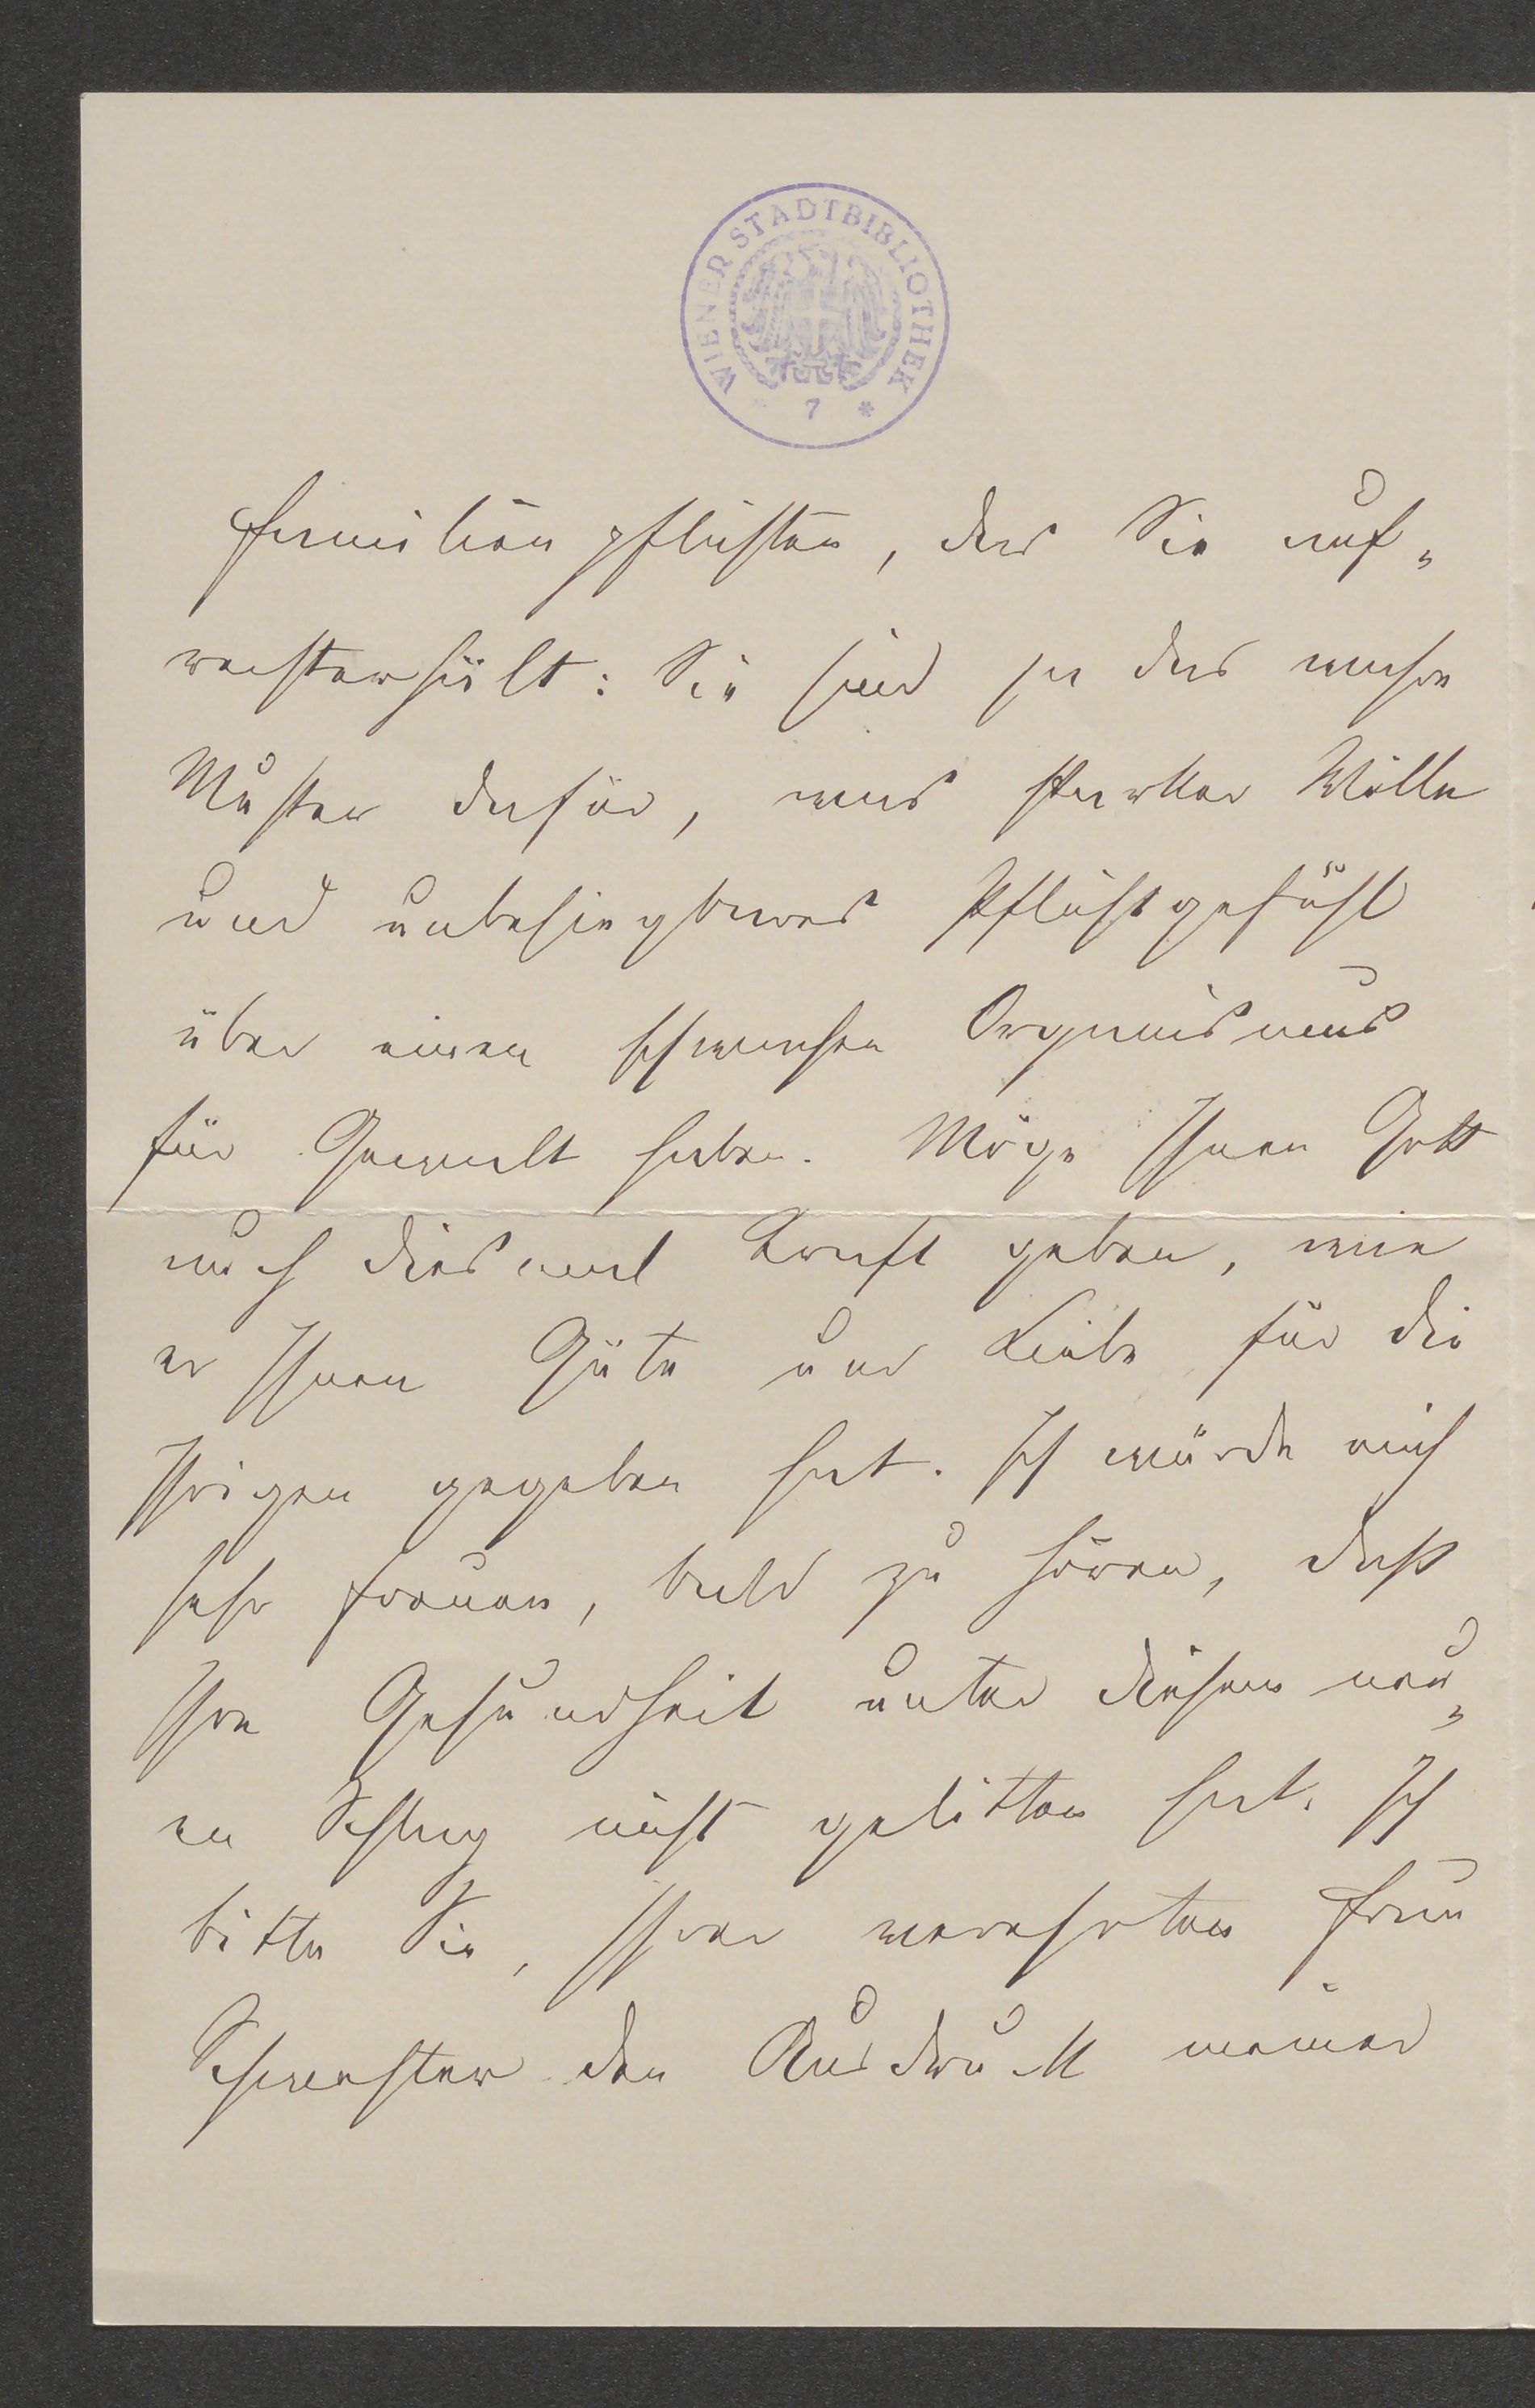 WIENER STADTBIBLIOTHEK
* 7 *
Familienpflichten, das Sie auf-
rechterhält: Sie sind ja das wahre
Muster dafür, was starker Wille
und unbesiegbares Pflichtgefühl
über einen schwachen Organismus
für Gewalt haben. Möge Ihnen Gott
auch diesmal Kraft geben, wie
er Ihnen Güte und Liebe für die
Ihrigen gegeben hat. Ich würde mich
sehr freuen, bald zu hören, daß
Ihre Gesundheit unter diesem neu-
en Schlag nicht gelitten hat. Ich
bitte Sie, Ihrer verehrten Frau
Schwester den Ausdruck meiner